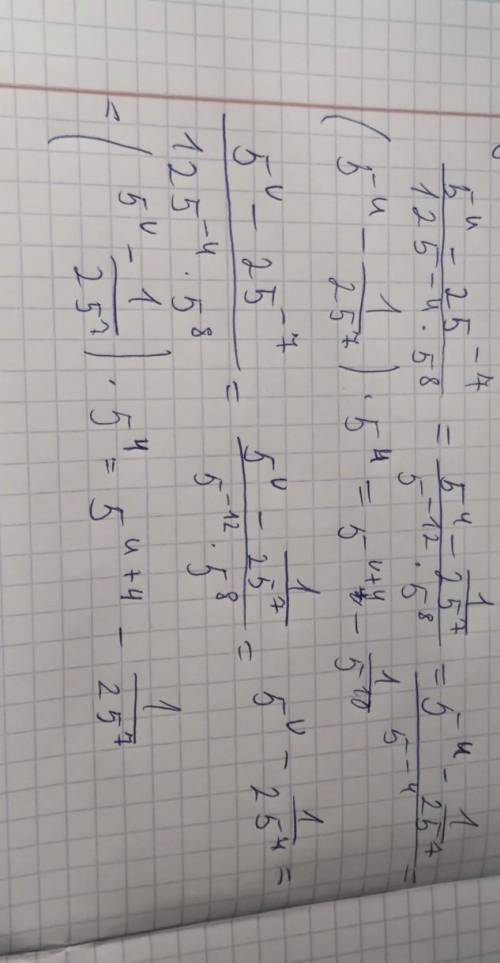 (5^u - 25^-7)/(125^-4 · 5^8) = (5^u - 1/25^7)/(5^-12 · 5^8) = (5^u - 1/25^7)/(5^-4) =
(5^u - 1/25^7) · 5^4 = 5^(u+4) - 1/5^10
(5^u - 25^-7)/(125^-4 · 5^8) = (5^u - 1/25^7)/(5^-12 · 5^8) = 5^u - 1/25^4 =
= (5^u - 1/25^7) · 5^4 = 5^(u+4) - 1/25^7